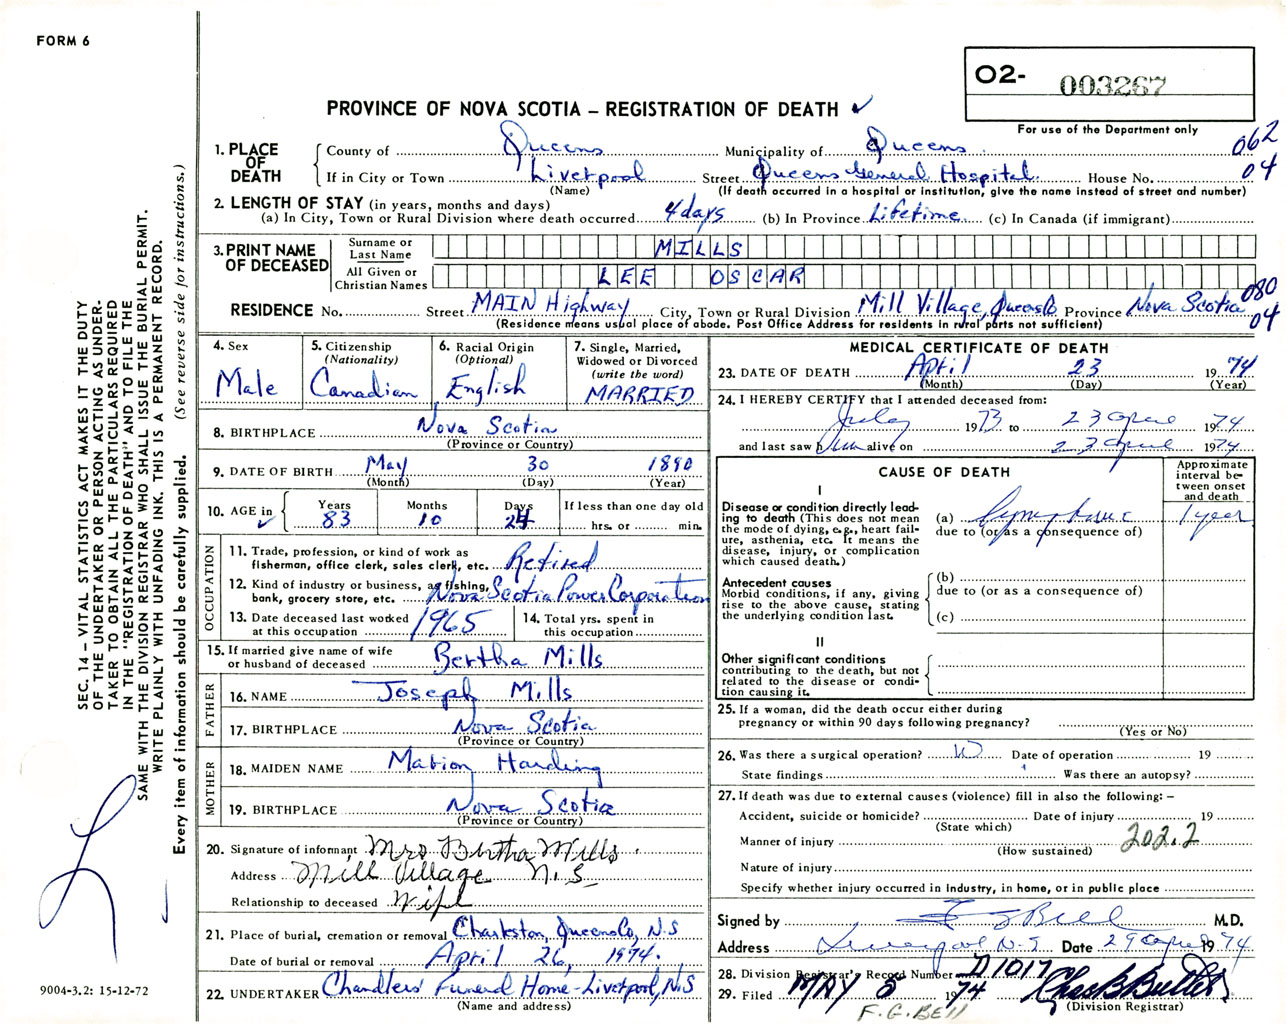 FORM 6
O2- 003267
PROVINCE OF NOVA SCOTIA – REGISTRATION OF DEATH ✓
For use of the Department only
1. PLACE OF DEATH
County of Queens Municipality of Queens 062
If in City or Town Liverpool Street Queens General Hospital House No. 04
(Name) (If death occurred in a hospital or institution, give the name instead of street and number)
2. LENGTH OF STAY (in years, months and days)
(a) In City, Town or Rural Division where death occurred 4 days (b) In Province Lifetime (c) In Canada (if immigrant)
3. PRINT NAME OF DECEASED
Surname or Last Name MILLS
All Given or Christian Names LEE OSCAR
RESIDENCE No. Street MAIN Highway City, Town or Rural Division Mill Village, Queens Co Province Nova Scotia 080 04
(Residence means usual place of abode. Post Office Address for residents in rural parts not sufficient)
4. Sex
Male
5. Citizenship
(Nationality)
Canadian
6. Racial Origin
(Optional)
English
7. Single, Married,
Widowed or Divorced
(write the word)
MARRIED
8. BIRTHPLACE Nova Scotia
(Province or Country)
9. DATE OF BIRTH May 30 1890
(Month) (Day) (Year)
10. AGE in ✓
Years 83
Months 10
Days 24
If less than one day old
hrs. or min.
OCCUPATION
11. Trade, profession, or kind of work as
fisherman, office clerk, sales clerk, etc. Retired
12. Kind of industry or business, as fishing,
bank, grocery store, etc. Nova Scotia Power Corporation
13. Date deceased last worked
at this occupation 1965
14. Total yrs. spent in
this occupation
15. If married give name of wife
or husband of deceased Bertha Mills
FATHER
16. NAME Joseph Mills
17. BIRTHPLACE Nova Scotia
(Province or Country)
MOTHER
18. MAIDEN NAME Marion Harding
19. BIRTHPLACE Nova Scotia
(Province or Country)
20. Signature of informant Mrs Bertha Mills
Address Mill Village N.S
Relationship to deceased Wife
21. Place of burial, cremation or removal Charleston, Queens Co, N.S
Date of burial or removal April 26, 1974.
22. UNDERTAKER Chandlers' Funeral Home - Liverpool, N.S
(Name and address)
MEDICAL CERTIFICATE OF DEATH
23. DATE OF DEATH April 23 1974
(Month) (Day) (Year)
24. I HEREBY CERTIFY that I attended deceased from:
July 1973 to 23 April 1974
and last saw him alive on 23 April 1974
CAUSE OF DEATH
Approximate
interval be-
tween onset
and death
I
Disease or condition directly lead-
ing to death (This does not mean
the mode of dying, e.g., heart fail-
ure, asthenia, etc. It means the
disease, injury, or complication
which caused death.)
(a) 1 year
due to (or as a consequence of)
Antecedent causes
Morbid conditions, if any, giving
rise to the above cause, stating
the underlying condition last.
(b)
due to (or as a consequence of)
(c)
II
Other significant conditions
contributing to the death, but not
related to the disease or condi-
tion causing it.
25. If a woman, did the death occur either during
pregnancy or within 90 days following pregnancy?
(Yes or No)
26. Was there a surgical operation? Date of operation 19
State findings Was there an autopsy?
27. If death was due to external causes (violence) fill in also the following: –
Accident, suicide or homicide? Date of injury 19
(State which)
Manner of injury 202.2
(How sustained)
Nature of injury
Specify whether injury occurred in industry, in home, or in public place
Signed by F G Bell M.D.
Address Liverpool N.S. Date 29 April 1974
28. Division Registrar's Record Number D1017
29. Filed MAY 5 1974 Chas B Butler
(Division Registrar)
F.G. BELL
SEC. 14 – VITAL STATISTICS ACT MAKES IT THE DUTY
OF THE UNDERTAKER OR PERSON ACTING AS UNDER-
TAKER TO OBTAIN ALL THE PARTICULARS REQUIRED
IN THE "REGISTRATION OF DEATH" AND TO FILE THE
SAME WITH THE DIVISION REGISTRAR WHO SHALL ISSUE THE BURIAL PERMIT.
WRITE PLAINLY WITH UNFADING INK. THIS IS A PERMANENT RECORD.
Every item of information should be carefully supplied. (See reverse side for instructions.)
9004-3.2: 15-12-72